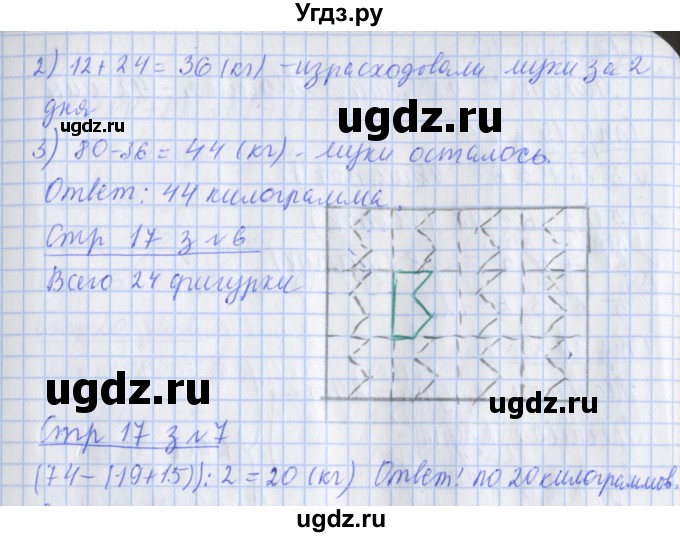 Угдз.ру
2) 12 + 24 = 36 (кг) - израсходовали муки за 2
дня
ugdz.ru
ugdz.ru
3) 80-36 = 44 (кг) - муки осталось.
Ответ: 44 килограмма.
Стр 17 з №6
Всего 24 фигурки
ugdz.ru
ugdz.ru
Стр 17 з №7
(74-(19+15)):2=20 (кг) Ответ: по 20 килограммов.
ugdz.ru